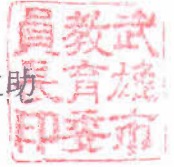 助
武雄市
教育委
員長印